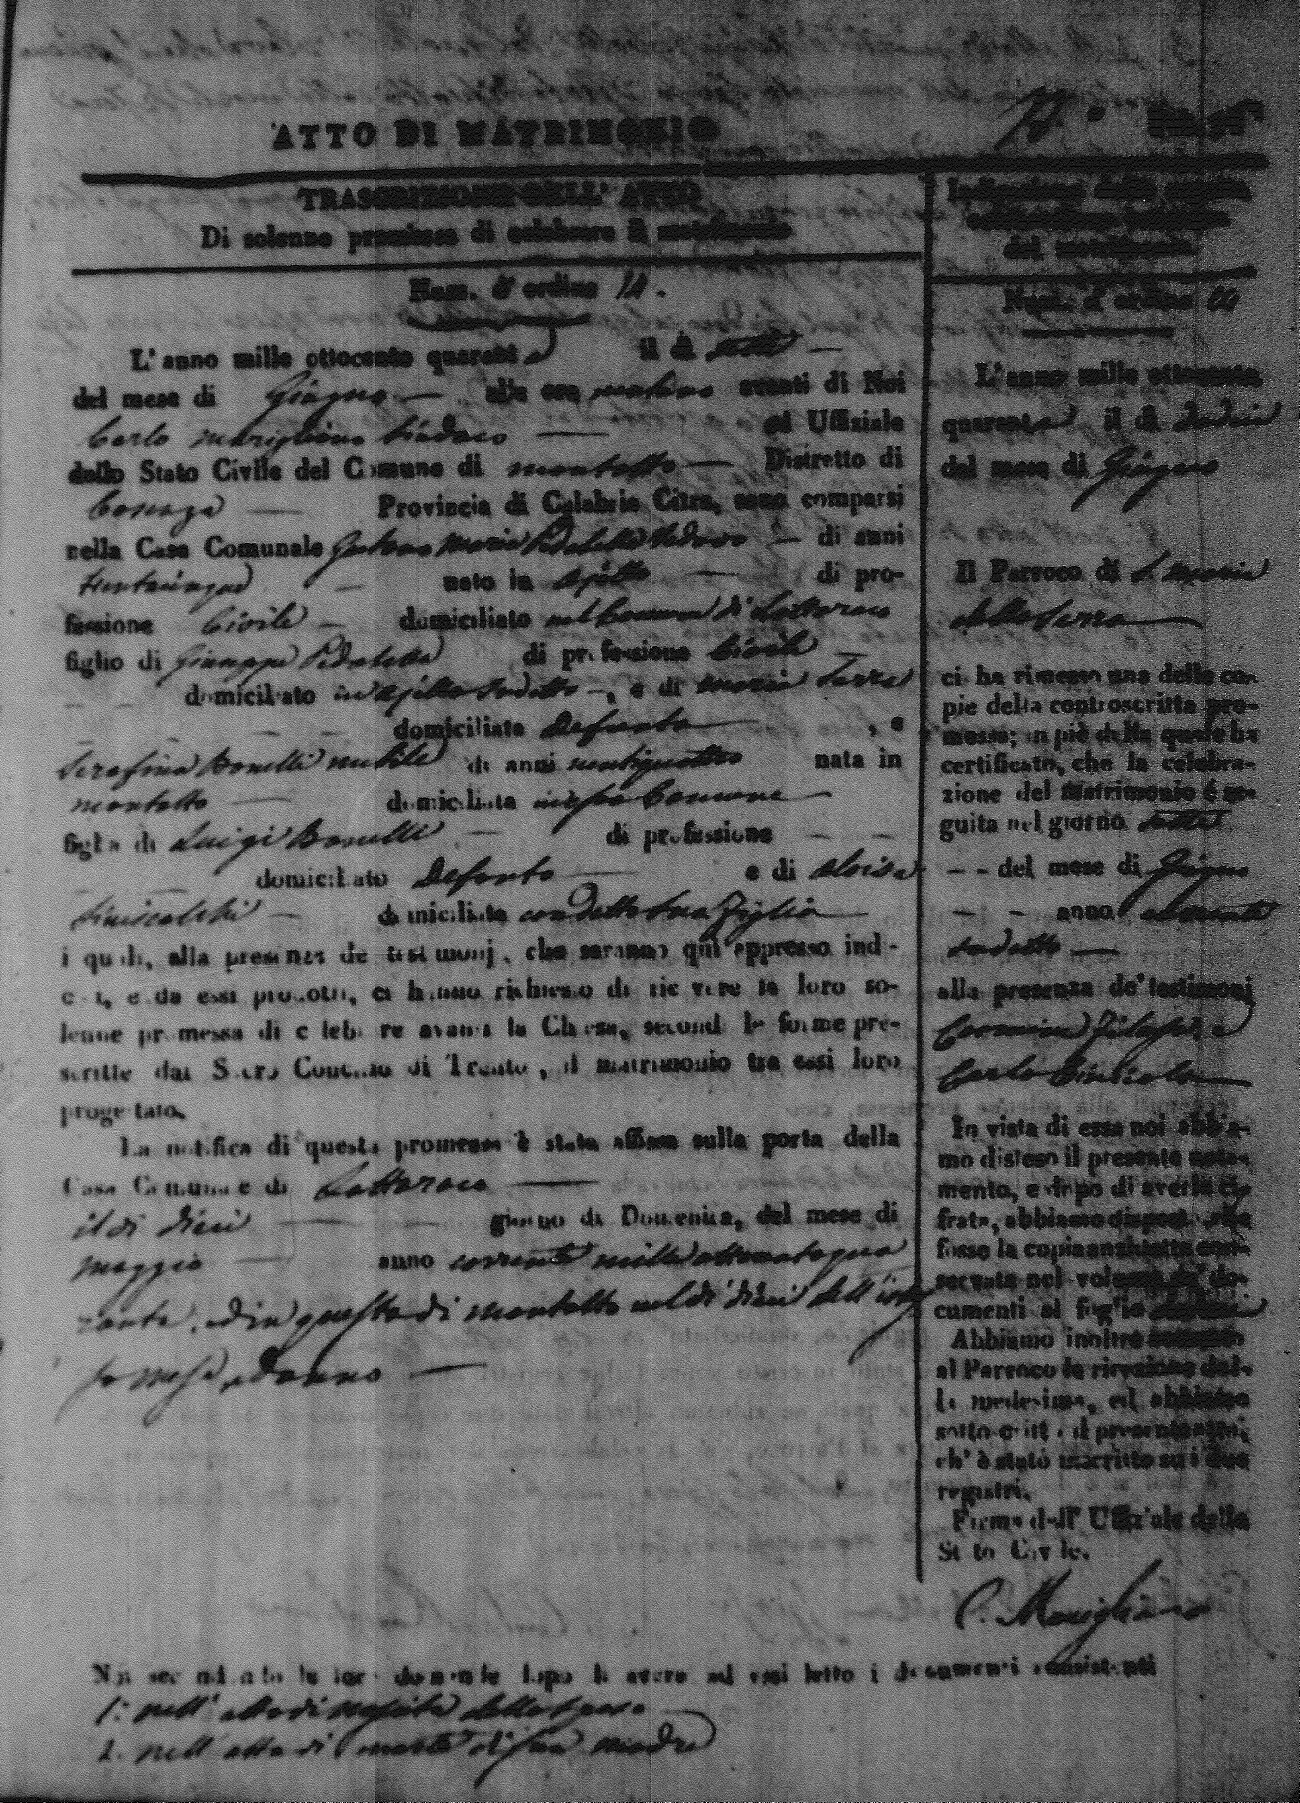 ATTO DI MATRIMONIO
TRASCRIZIONE DELL' ATTO
Di solenne promessa di celebrare il matrimonio
Num. d' ordine 12.
L' anno mille ottocento quaranta il dì sette
del mese di Giugno alle ore avanti di Noi
Carlo Marigliano Sindaco ed Uffiziale
dello Stato Civile del Comune di Montalto Distretto di
Cosenza Provincia di Calabria Citra, sono comparsi
nella Casa Comunale Gaetano Maria vedovo di anni
trentacinque nato in di pro-
fessione Civile domiciliato nel Comune di Lattaraco
figlio di Giuseppe di professione Civile
domiciliato in , e di Maria Serra
domiciliata Defunta , e
Serafina Bonelli nubile di anni ventiquattro nata in
Montalto domiciliata in essa Comune
figlia di Luigi Bonelli di professione
domiciliato Defunto e di Aloisa
Siniscalchi domiciliata con detta sua figlia
i quali, alla presenza de' testimonj, che saranno qui appresso indi-
cati, e da essi prodotti, ci hanno richiesto di ricevere la loro so-
lenne promessa di celebrare avanti la Chiesa, secondo le forme pre-
scritte dal Sacro Concilio di Trento, il matrimonio tra essi loro
progettato.
La notifica di questa promessa è stata affissa sulla porta della
Casa Comunale di Lattaraco
il dì dieci giorno di Domenica, del mese di
Maggio anno corrente mille ottocento qua
ranta, ed in questa di Montalto nel dì dieci dell' istes
so mese, ed anno
Indicazione della seguita
celebrazione
del matrimonio
Num. d' ordine
L' anno mille ottocento
quaranta il dì dodici
del mese di Giugno
Il Parroco di S. Maria
della Serra
ci ha rimesso una delle co-
pie della controscritta pro-
messa; in piè della quale ha
certificato, che la celebra-
zione del Matrimonio è se-
guita nel giorno sette
del mese di Giugno
anno corrente
sudetto
alla presenza de' testimonj
Carmine
Carlo
In vista di essa noi abbia-
mo disteso il presente nota-
mento, e dopo di averla ci-
frata, abbiamo disposto, che
fosse la copia anzidetta con-
servata nel volume de' do-
cumenti al foglio
Abbiamo inoltre accusato
al Parroco la ricezione del-
la medesima, ed abbiamo
sottoscritto il presente atto,
ch' è stato inscritto su i due
registri.
Firma dell' Uffiziale dello
Stato Civile.
C. Marigliano
Noi secondando la loro domanda dopo di avere ad essi letto i documenti consistenti
1: nell' atto di nascita dello sposo
2. nell' atto di morte di sua madre